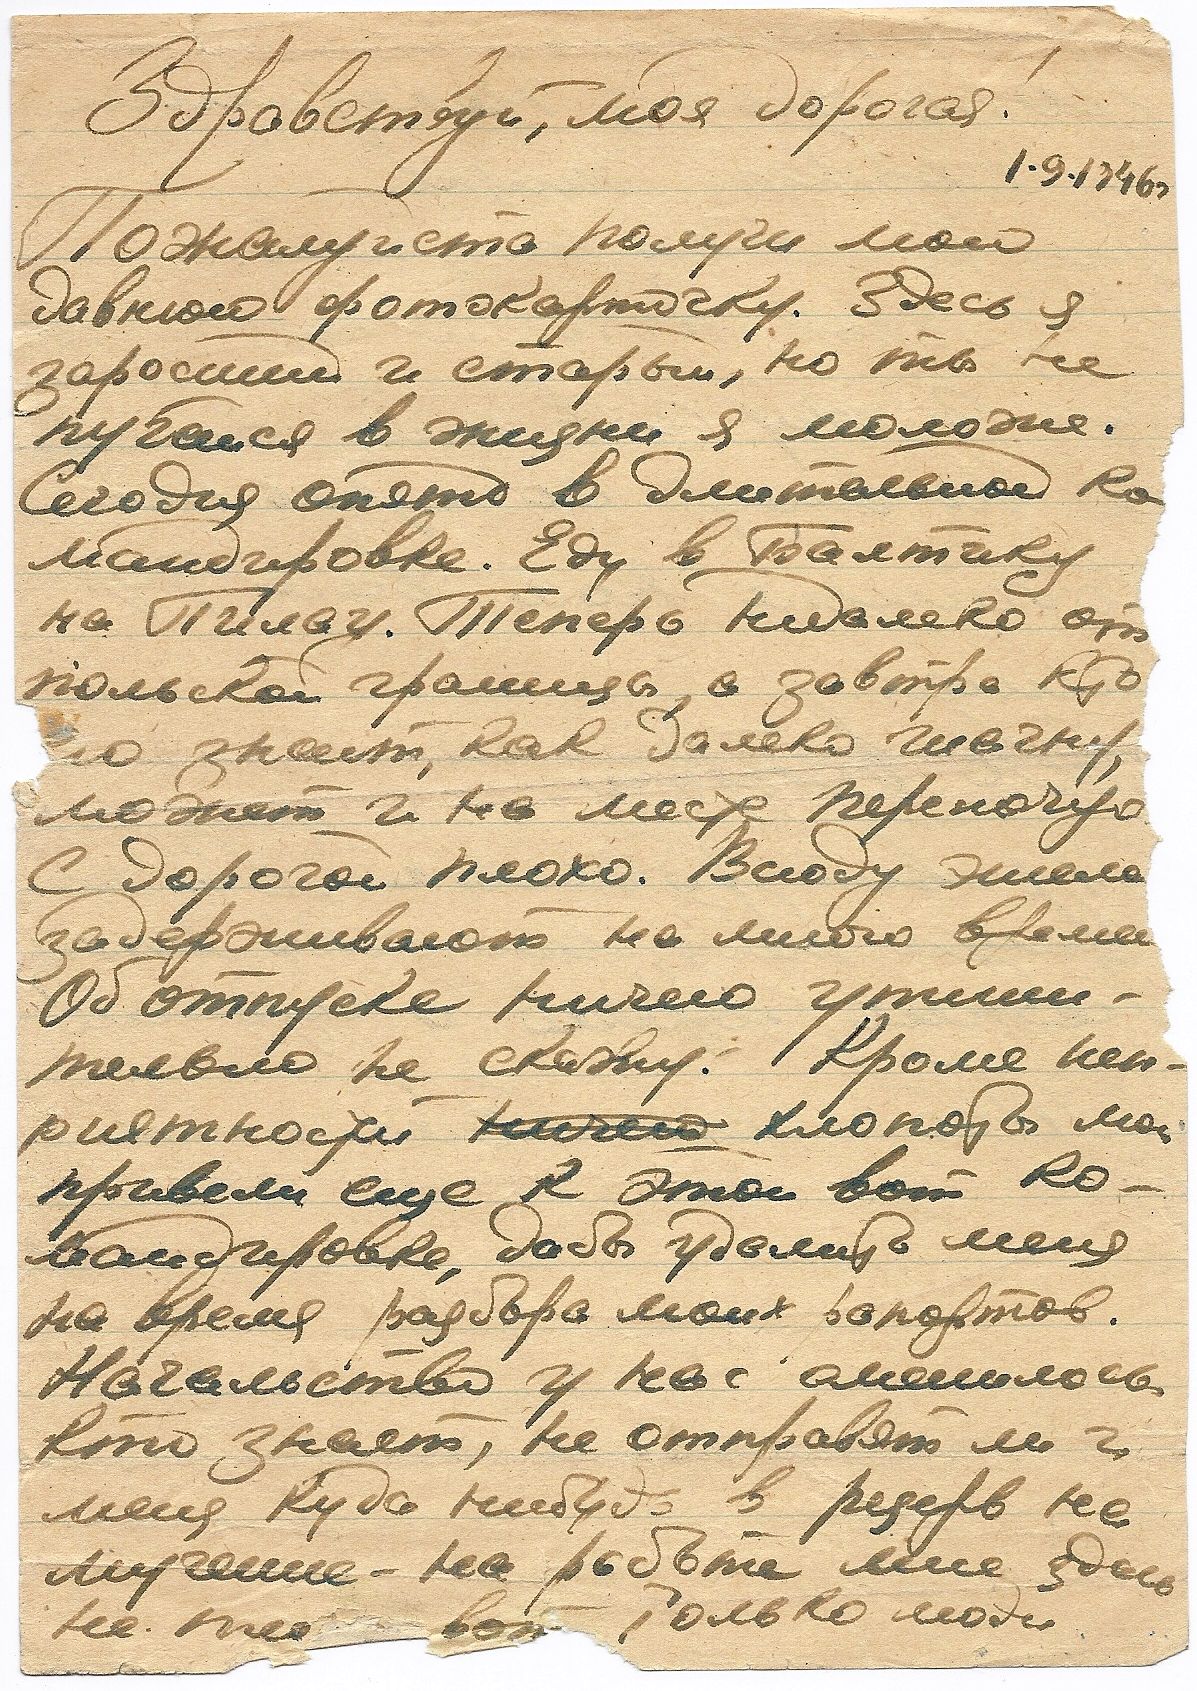 Здравствуй, моя дорогая!
1.9.1946г
Пожалуйста получи мою
давнюю фотокарточку. Здесь я
заросший и старый, но ты не
пугайся в жизни я моложе.
Сегодня опять в длительной ко
мандировке. Еду в Балтику
на Пилау. Теперь недалеко от
польской границы, а завтра кто
его знает, как далеко уж
может и на месте переночую
С дорогой плохо. Всюду
задерживают на много времени
Об отпуске ничего утеши-
тельно не скажу. Кроме неп-
риятности ничего хлопоты мои
привели еще к этой вот ко-
мандировке, дабы удалить меня
на время разбора моих рапортов.
Начальство у нас сменилось
кто знает, не отправят ли и
меня куда нибудь в резерв на
мучение - на работе мне здесь
не вот только люди